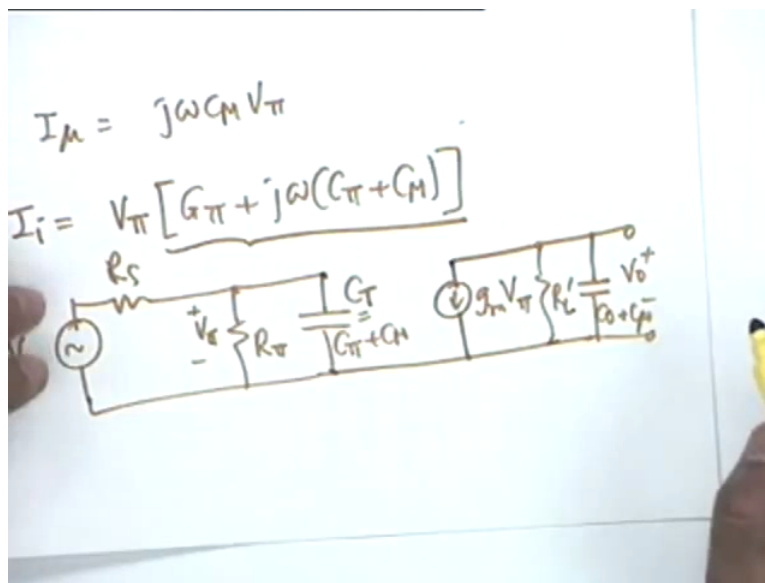 Iμ = jωC_M Vπ
Ii = Vπ [Gπ + jω(Cπ + C_M)]
Rs
+ Vπ -
Rπ
C_T = Cπ + C_M
g_m Vπ
R_L'
C_0 + Cμ
+ V_0 -